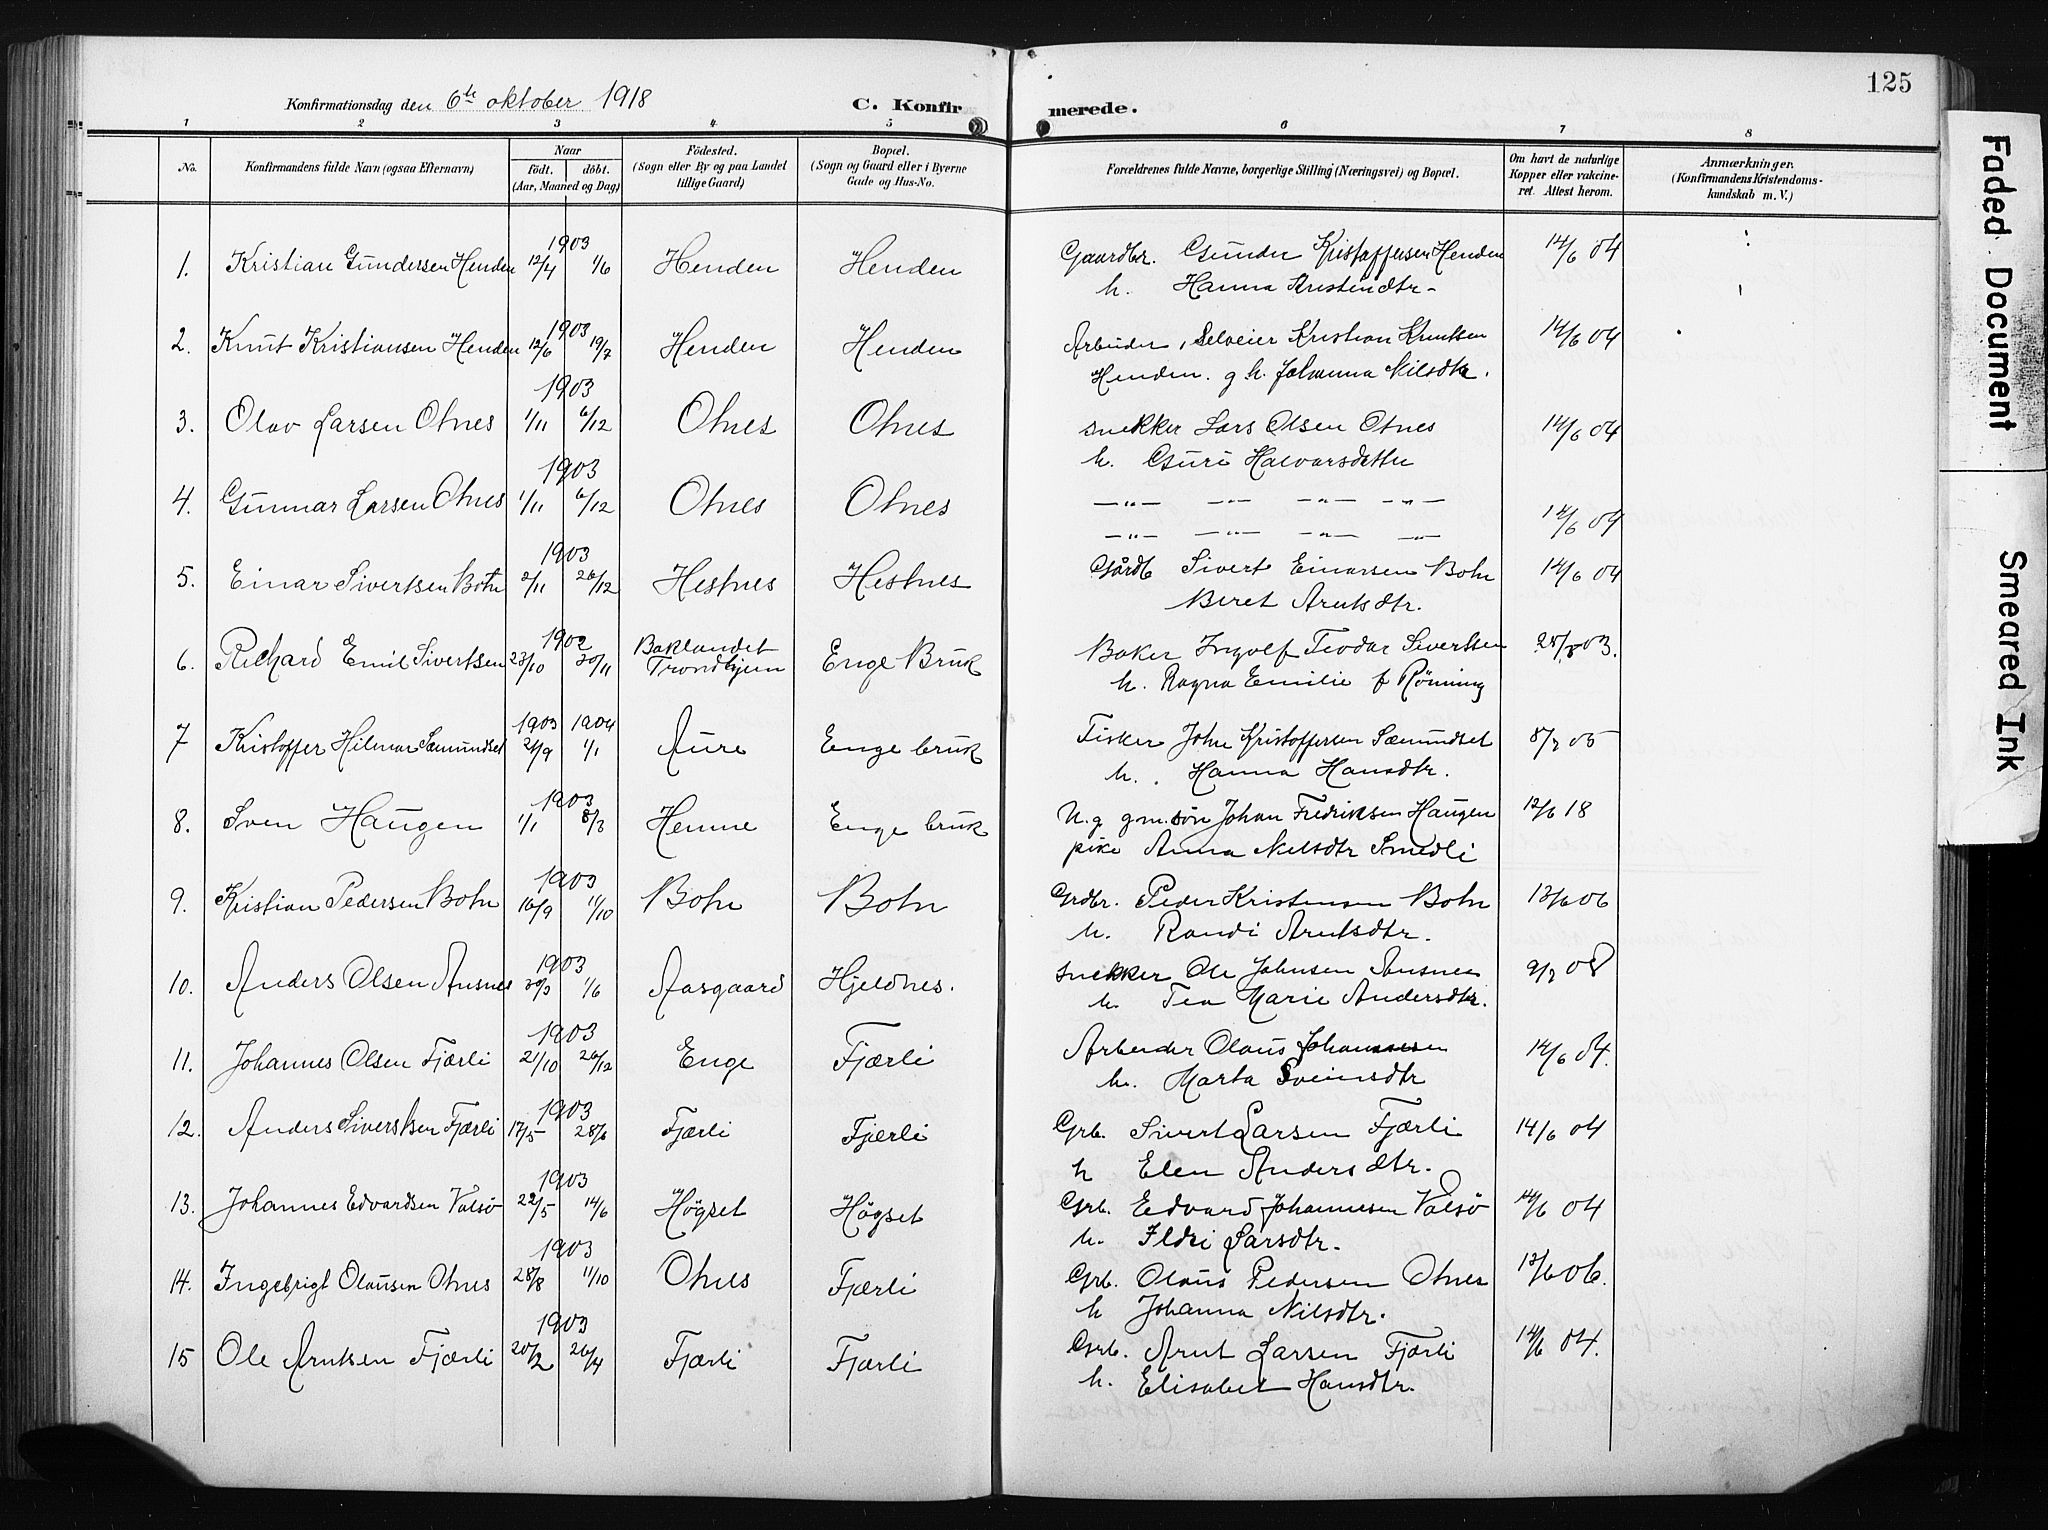 125
Konfirmationsdag den 6te oktober 1918
C. Konfirmerede.
1 2 3 4 5 6 7 8
No. Konfirmandens fulde Navn (ogsaa Efternavn) Naar født. døbt. (Aar, Maaned og Dag) Födested. (Sogn eller By og paa Landet tillige Gaard) Bopæl. (Sogn og Gaard eller i Byerne Gade og Hus-No. Forældrenes fulde Navne, borgerlige Stilling (Næringsvei) og Bopæl. Om havt de naturlige Kopper eller vakcineret. Attest herom. Anmærkninger. (Konfirmandens Kristendomskundskab m. V.)
1. Kristian Gundersen Henden 1903 12/4 1/6 Henden Henden Gaardbr. Gunder Kristoffersen Henden 14/6 04
h. Hanna Kristendtr-
2. Knut Kristiansen Henden 1903 12/6 19/7 Henden Henden Arbeider, Selveier Kristian Knutsen 14/6 04
Henden. g h. Johanna Nilsdtr.
3. Olav Larsen Otnes 1903 1/11 6/12 Otnes Otnes snekker Lars Olsen Otnes 14/6 04
h. Guri Halvarsdatter
4. Gunnar Larsen Otnes 1903 1/11 6/12 Otnes Otnes —„— —„— —„— —„—
—„— —„— —„— —„— 14/6 04
5. Einar Sivertsen Botn 1903 2/11 26/12 Hestnes Hestnes Gårdb Sivert Einarsen Botn 14/6 04
Beret Arntsdtr.
6. Richard Emil Sivertsen 1902 23/10 30/11 Baklandet Trondhjem Enge Bruk Baker Ingolf Teodar Sivertsen 25/8 03.
h. Ragna Emilie f Rönning
7 Kristoffer Hilmar Sæmundset 1903 26/9 1904 1/1 Aure Enge bruk Fisker John Kristoffersen Sæmundset 8/7 05
h. Hanna Hansdtr.
8. Sven Haugen 1903 1/1 8/3 Hemne Enge bruk U. g gm. søn Johan Fredriksen Haugen 12/6 18
pike Anna Nilsdtr Smedli
9. Kristian Pedersen Botn 1903 16/9 11/10 Botn Botn Grdbr. Peder Kristensen Botn 13/6 06
h. Randi Arntsdtr.
10. Anders Olsen Ansnes 1903 30/3 1/6 Aasgaard Hjeldnes. snekker Ole Johnsen Ansnes 9/7 08
h. Tea Marie Andersdtr.
11. Johannes Olsen Fjærli 1903 21/10 26/12 Enge Fjærli Arbeider Olaus Johannesen 14/6 04.
h. Marta Sveinsdtr
12. Anders Sivertsen Fjærli 1903 17/5 28/6 Fjærli Fjærli Grb. Sivert Larsen Fjærli 14/6 04
h Elen Andersdtr.
13. Johannes Edvardsen Valsø 1903 22/5 14/6 Høgset Høgset Grb. Edvard Johannesen Valsø 14/6 04
h. Ildri Larsdtr.
14. Ingebrigt Olausen Otnes 1903 28/8 11/10 Otnes Fjærli Grb. Olaus Pedersen Otnes 13/6 06.
h Johanna Nilsdtr.
15 Ole Arntsen Fjærli 1903 20/2 26/4 Fjærli Fjærli Grb. Arnt Larsen Fjærli 14/6 04.
h. Elisabet Hansdtr.
Faded Document
Smeared Ink